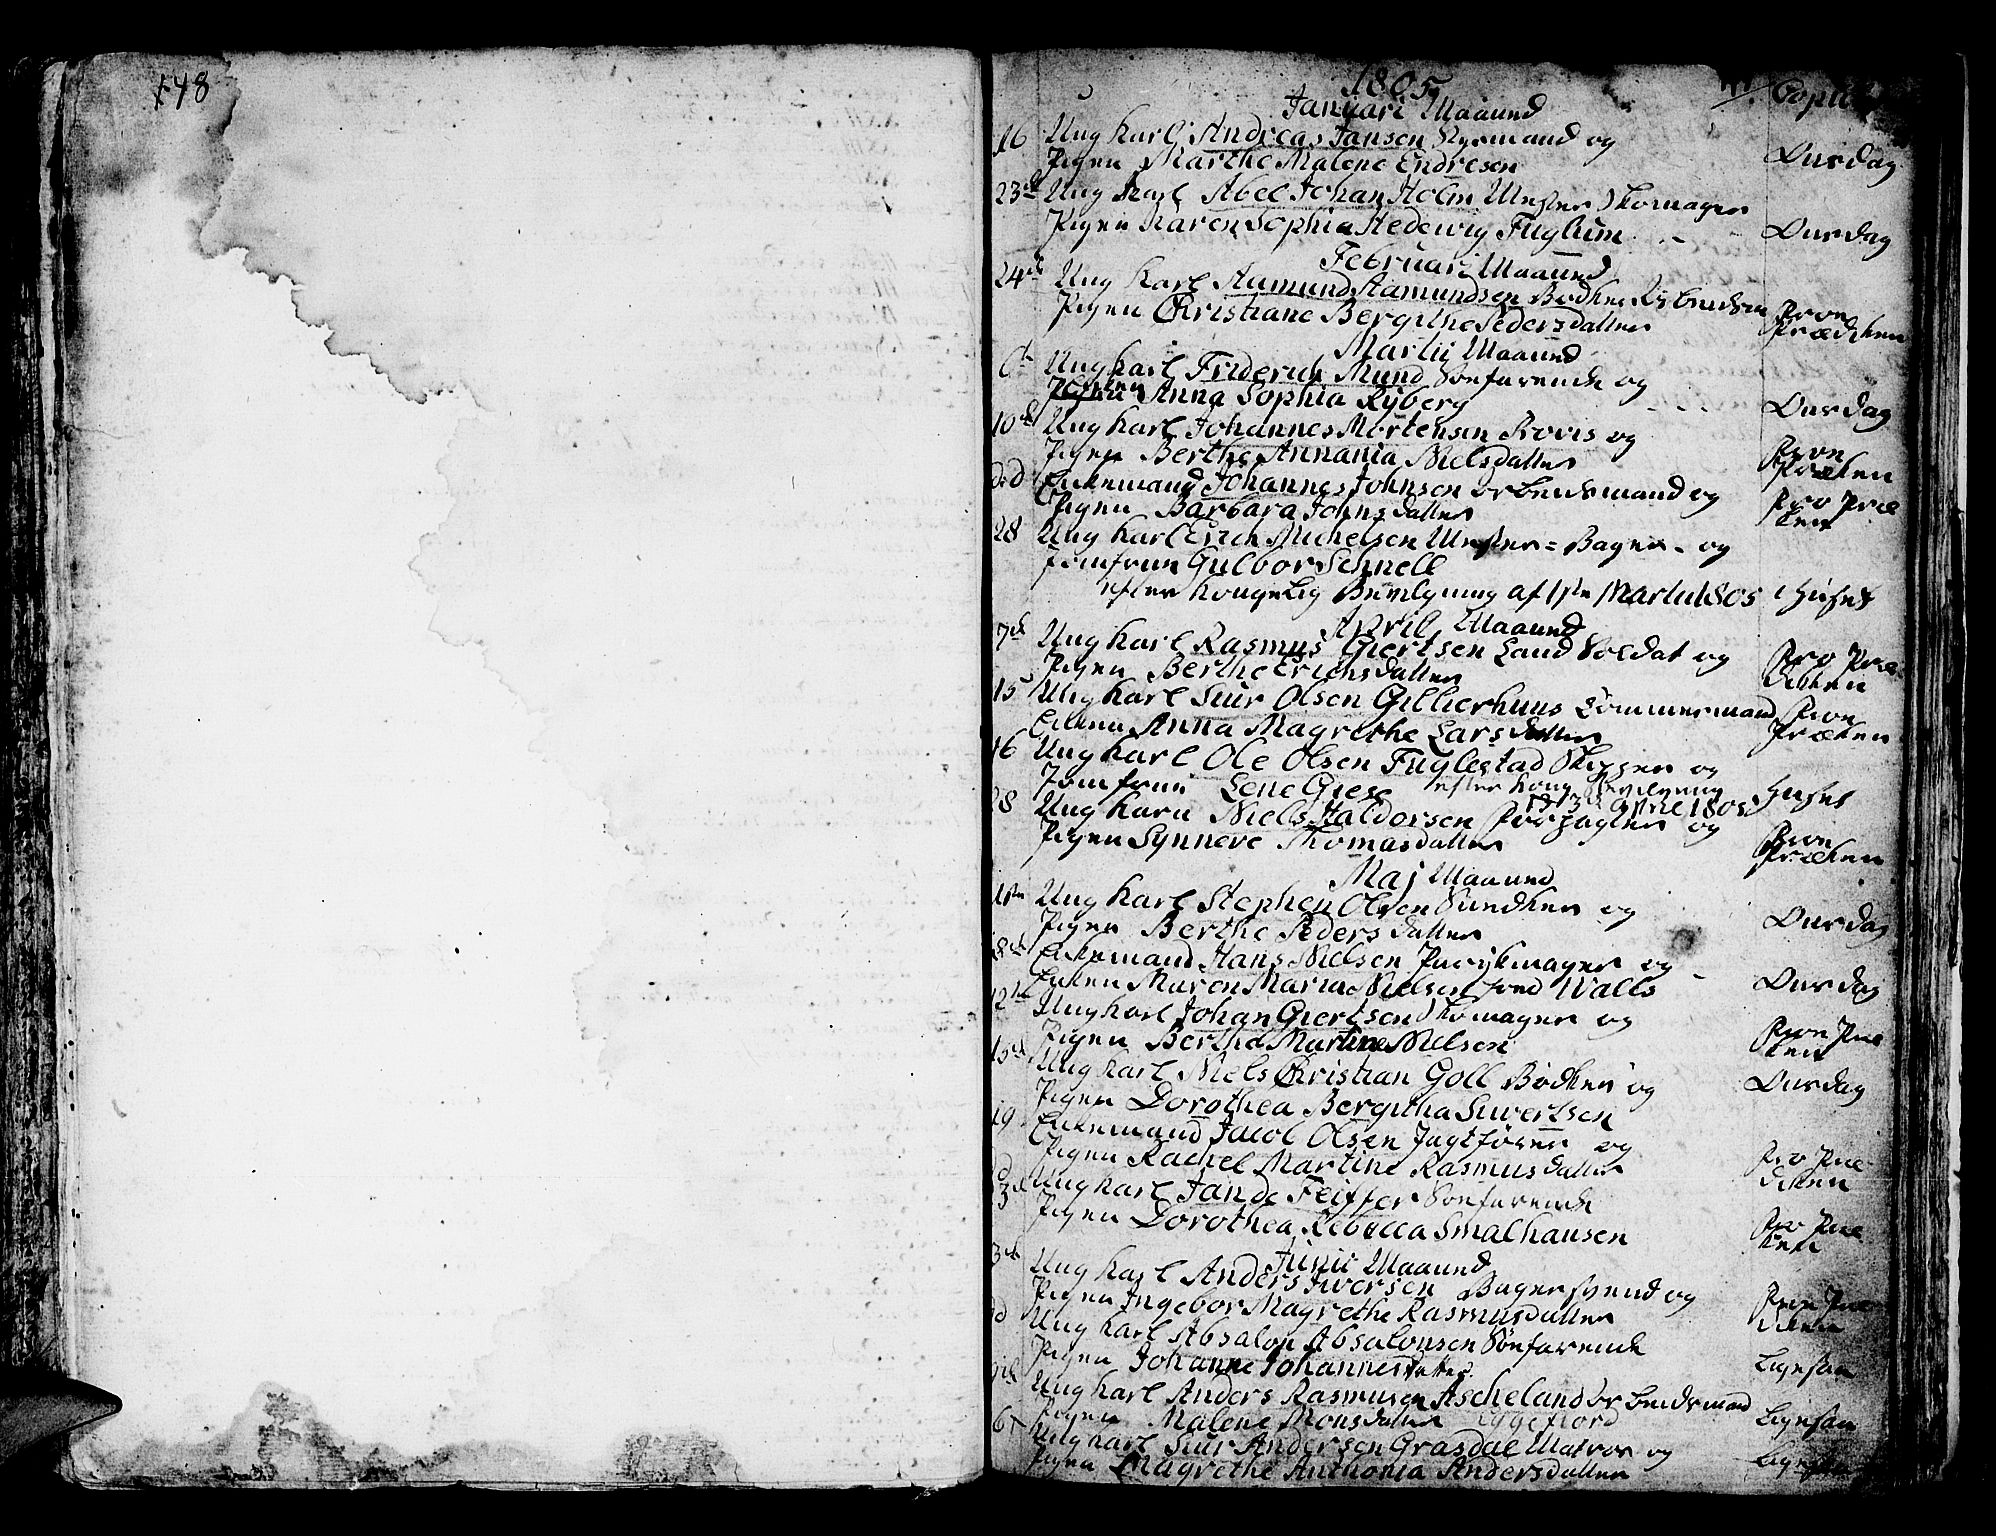 148
1805
Januari Maaned
16 Ung Karl Andreas Jansen og
Pigen Marthe Malene Endresen Onsdag
23de Ung Karl Abel Johan Holm Mester Skomager
Pigen Karen Sophia Hedewig Fuglum Onsdag
Februari Maaned
24de Ung Karl Aamund Aamundsen Bødker
Pigen Christiane Bergithe Pedersdatter Froe Prædiken
Martii Maaned
6te Ung Karl Friderich Mund Søefarende og
Anna Sophia Ryberg Onsdag
10de Ung Karl Johannes Mortensen Rovis og
Pigen Berthe Annania Nielsdatter Froe Præken
dod Enkemand Johannes Johnsen Arbeidsmand og
Pigen Barbara Johnsdatter Fro Præken
28 Ung Karl Erich Michelsen Mester Bager og
Jomfrue Gulbor Schnell
efter Kongelig Bevilgning af 1ste Martii 1805 i Huset
April Maaned
7de Ung Karl Rasmus Giertsen Land Soldat og
Pigen Berthe Erichsdatter Fro Prædiken
15 Ung Karl Siur Olsen Gillierhuus Tømmermand
Enken Anna Magrethe Larsdatter Froe Præken
16 Ung Karl Ole Olsen Fuglestad Skipper og
Jomfrue Lene Giese efter Kong. Bevilgning
April 1805 Huset
28 Ung Karl Niels Haldorsen og
Pigen Synneve Thomasdatter Froe Præken
Maj Maaned
1ste Ung Karl Stephen Olsen Snedker og
Pigen Berthe Pedersdatter Onsdag
8de Enkemand Hans Nielsen Parykmager og
Enken Maren Maria Nielsen fød Walls Onsdag
12te Ung Karl Johan Giertsen Skomager og
Pigen Berthe Martine Nielsen Froe Præken
15de Ung Karl Niels Christian Goll Bødker og Onsdag
Pigen Dorothea Bergitha Siwertsen
19 Enkemand Jacob Olsen Jagtfører og
Pigen Rachel Martine Rasmusdatter Fro Prædiken
Ung Karl Jan de Feiffer Søefarende
Pigen Dorothea Rebecca Smalhausen Fro Præken
Junii Maaned
3de Ung Karl Anders Iversen Bagersvend og
Pigen Ingebor Magrethe Rasmusdatter Froe Prædiken
Ung Karl Absalon Absalonsen Søefarende
Pigen Johanne Johannesdatter Ligesaa
Ung Karl Anders Rasmusen Ascheland Arbeidsmand
Pigen Malene Monsdatter Eggefiord Ligesaa
Ung Karl Siur Andersen Grasdal Matros og
Pigen Magrethe Anthonia Andersdatter Ligesaa